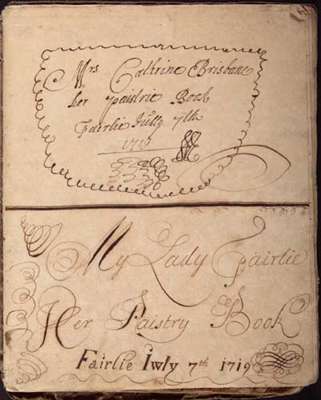 Mrs Cathrine Brisbane
her paistrie Book
Fairlie Jully 7th
1719
My Lady Fairlie
Her Paistry Book
Fairlie Iwly 7th 1719